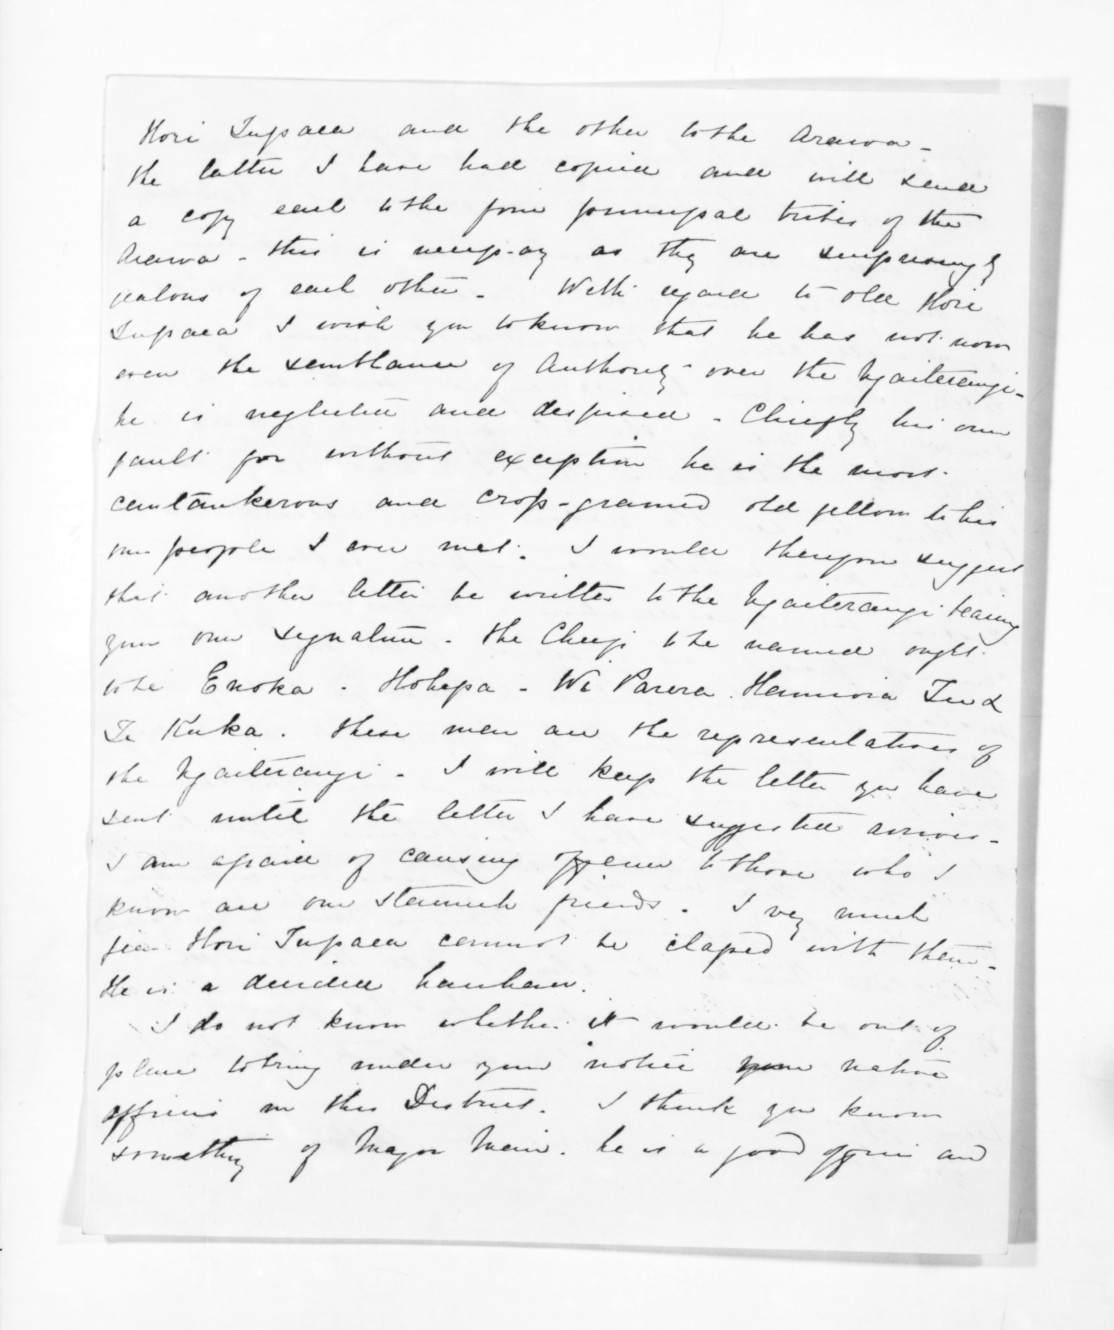 Hori Tupaea and the other to the Arawa -
the latter I have had copied and will send
a copy each to the four principal tribes of the
Arawa - this is necessary as they are surprisingly
jealous of each other - With regard to old Hori
Tupaea I wish you to know that he has not now
even the semblance of Authority over the Ngaiterangi -
he is neglected and despised - Chiefly his own
fault for without exception he is the most
cantankerous and crop-grained old fellow to his
own people I ever met. I would therefore suggest
that another letter be written to the Ngaiterangi bearing
your own signature - the Chiefs to be named ought
to be Enoka - Hohepa - Wi Parera Hamiora Tu &
Te Kuka. these men are the representatives of
the Ngaiterangi - I will keep the letter you have
sent until the letter I have suggested arrives -
I am afraid of causing offence to those who I
know are our staunch friends. I very much
fear Hori Tupaea cannot be classed with them -
He is a decided hauhau.
I do not know whether it would be out of
place to bring under your notice your native
officers in this District. I think you know
something of Major Mair. he is a good officer and